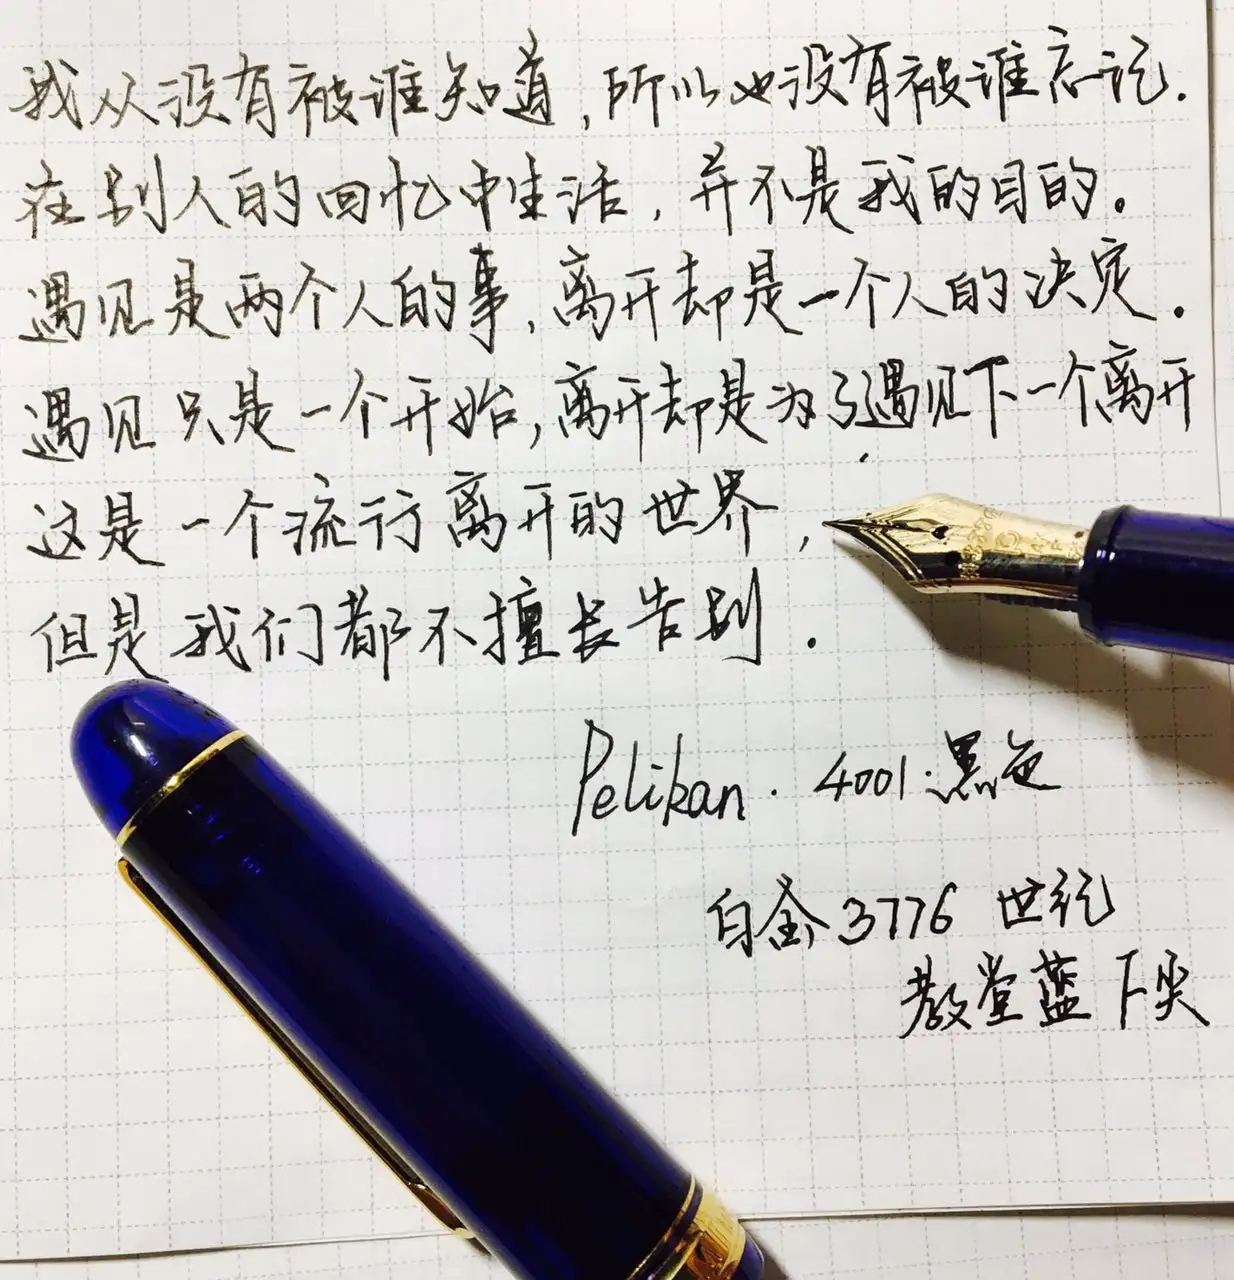 我从没有被谁知道,所以也没有被谁忘记.
在别人的回忆中生活,并不是我的目的。
遇见是两个人的事,离开却是一个人的决定.
遇见只是一个开始,离开却是为了遇见下一个离开.
这是一个流行离开的世界,
但是我们都不擅长告别.
Pelikan. 4001.黑色
白金3776 世纪
教堂蓝 F尖